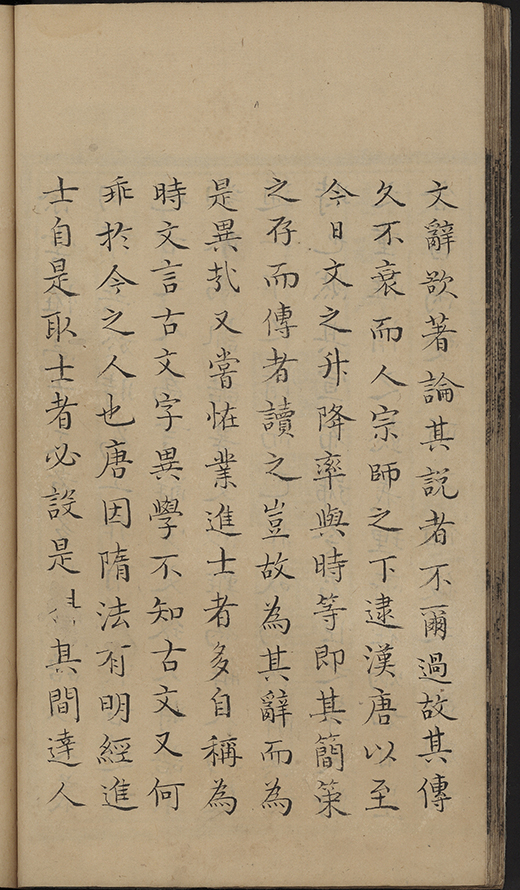 文辭欲著論其説者不爾過故其傳
久不衰而人宗師之下逮漢唐以至
今日文之升降率與時等即其簡策
之存而傳者讀之豈故為其辭而為
是異㢤又嘗恠業進士者多自稱為
時文言古文字異學不知古文又何
乖扵今之人也唐因隋法有明經進
士自是取士者必設是其間達人